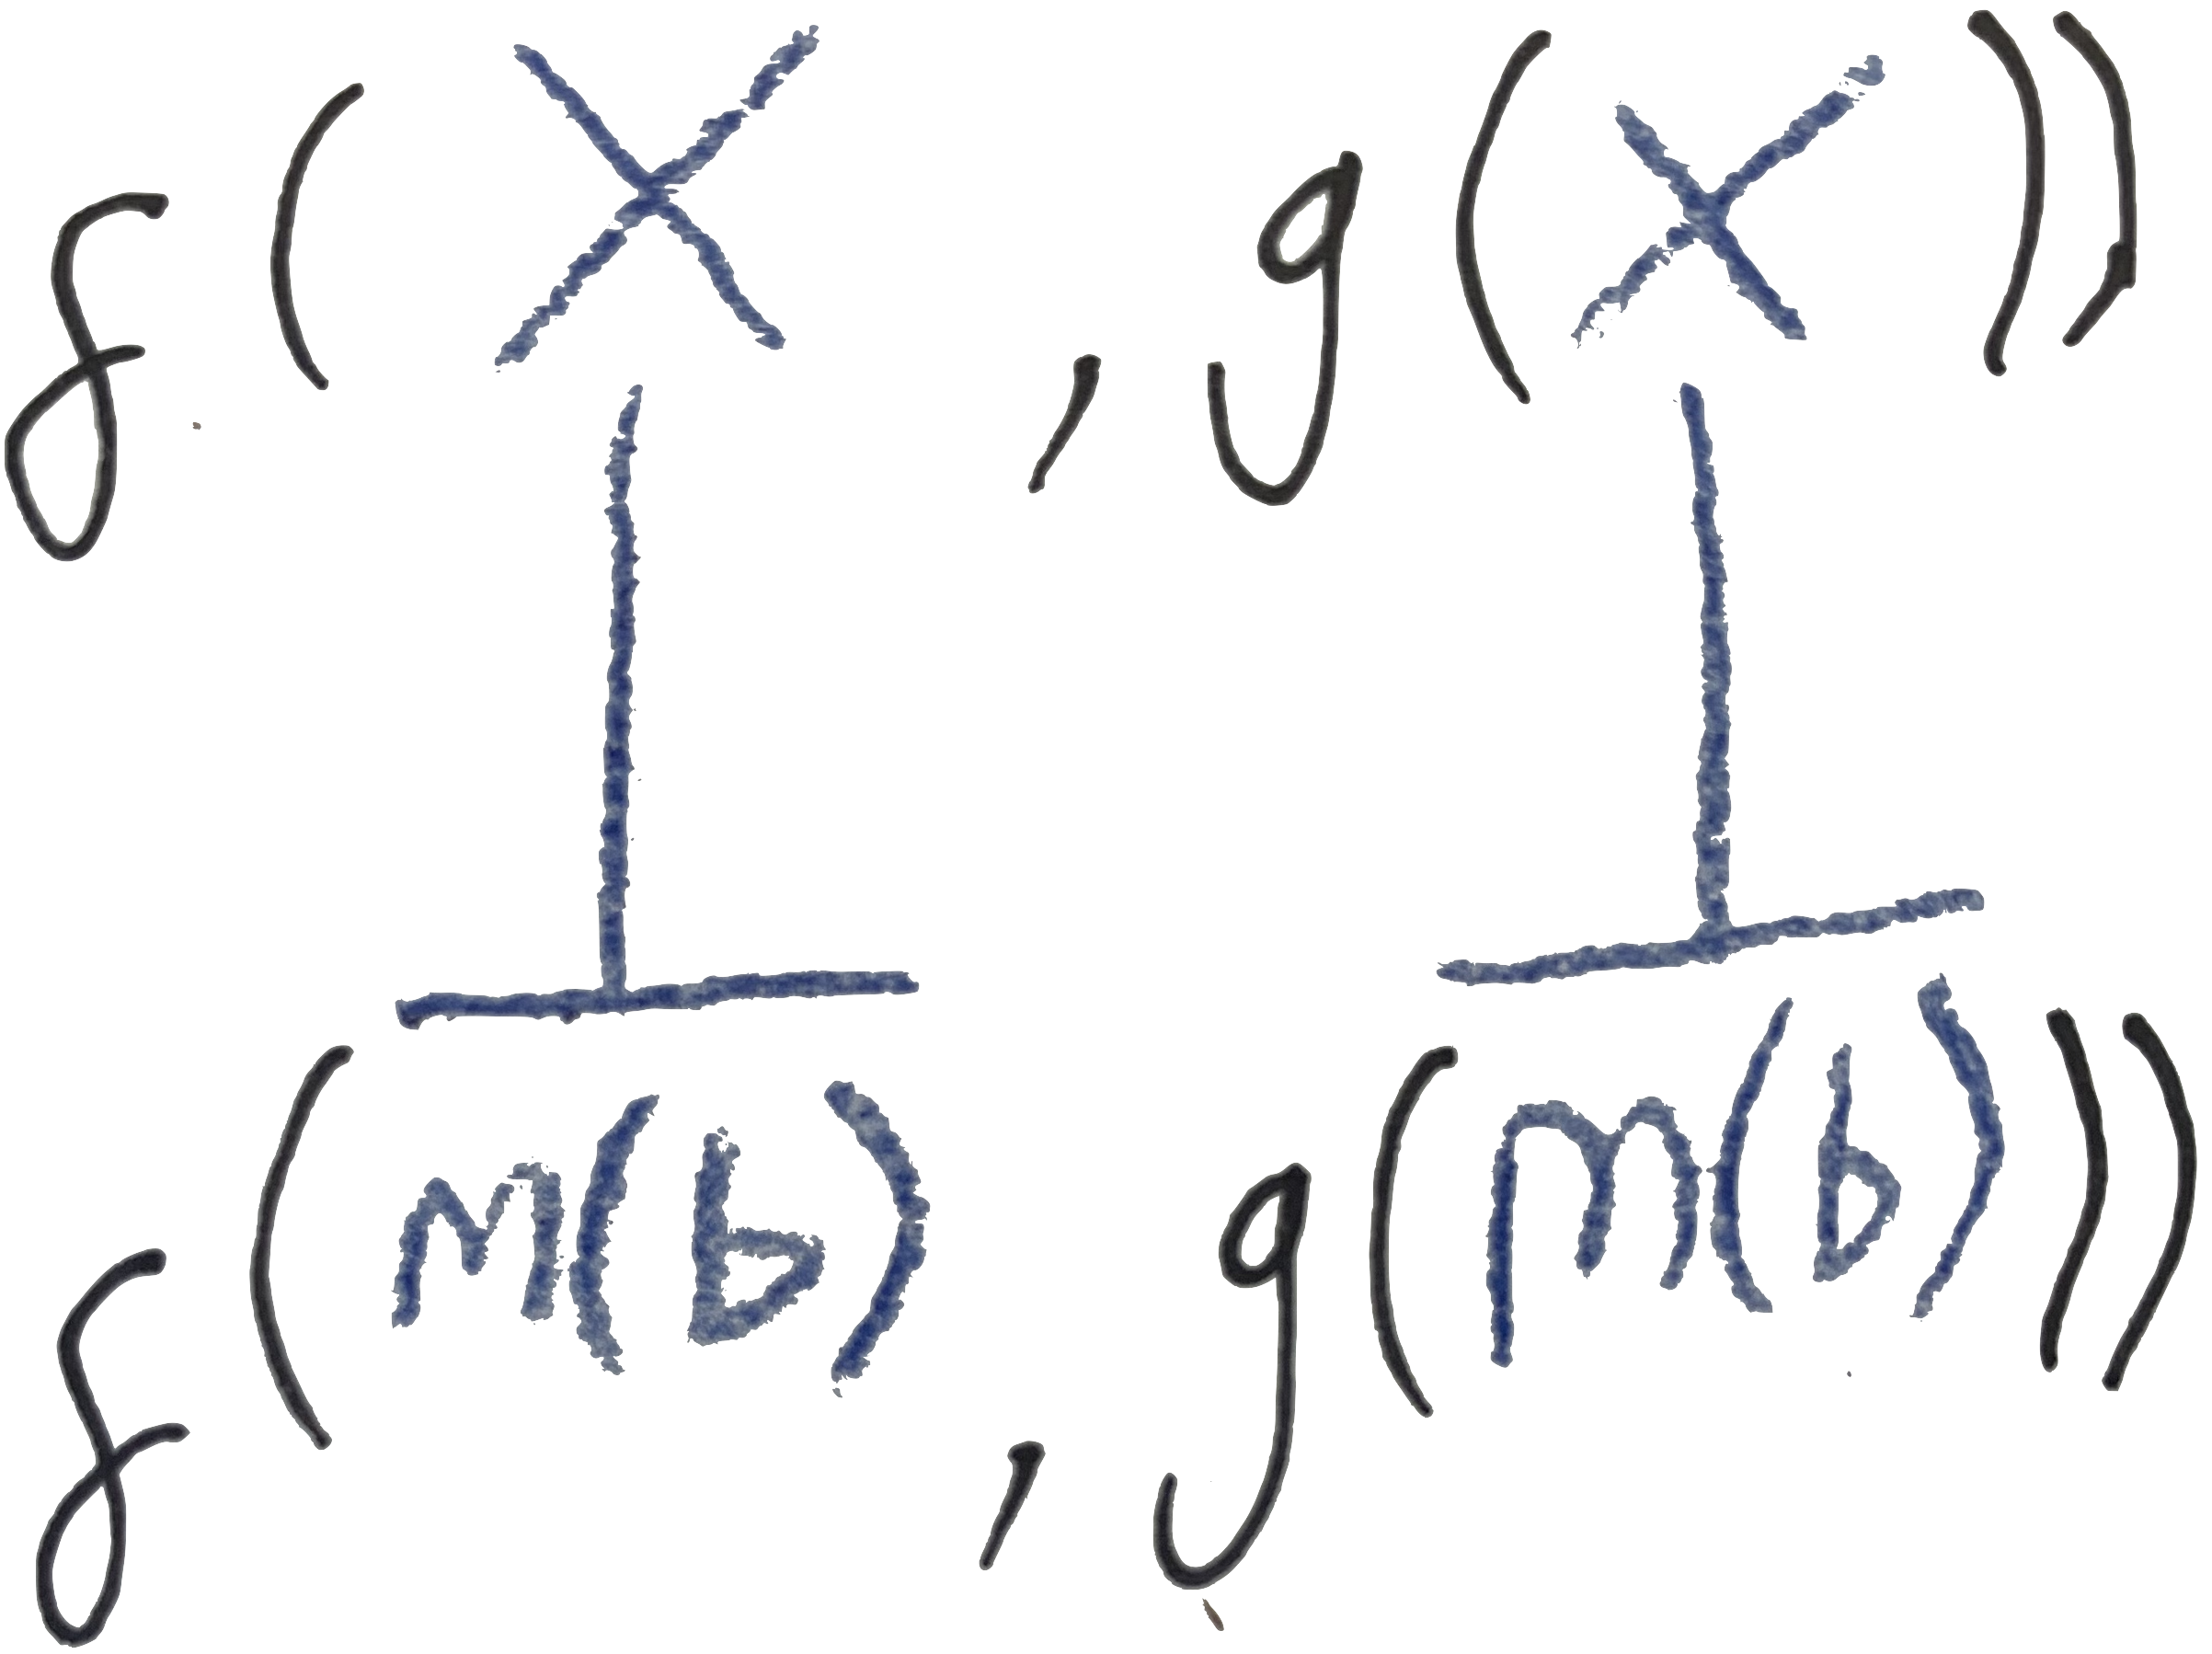 f(X, g(X))
f(m(b), g(m(b)))